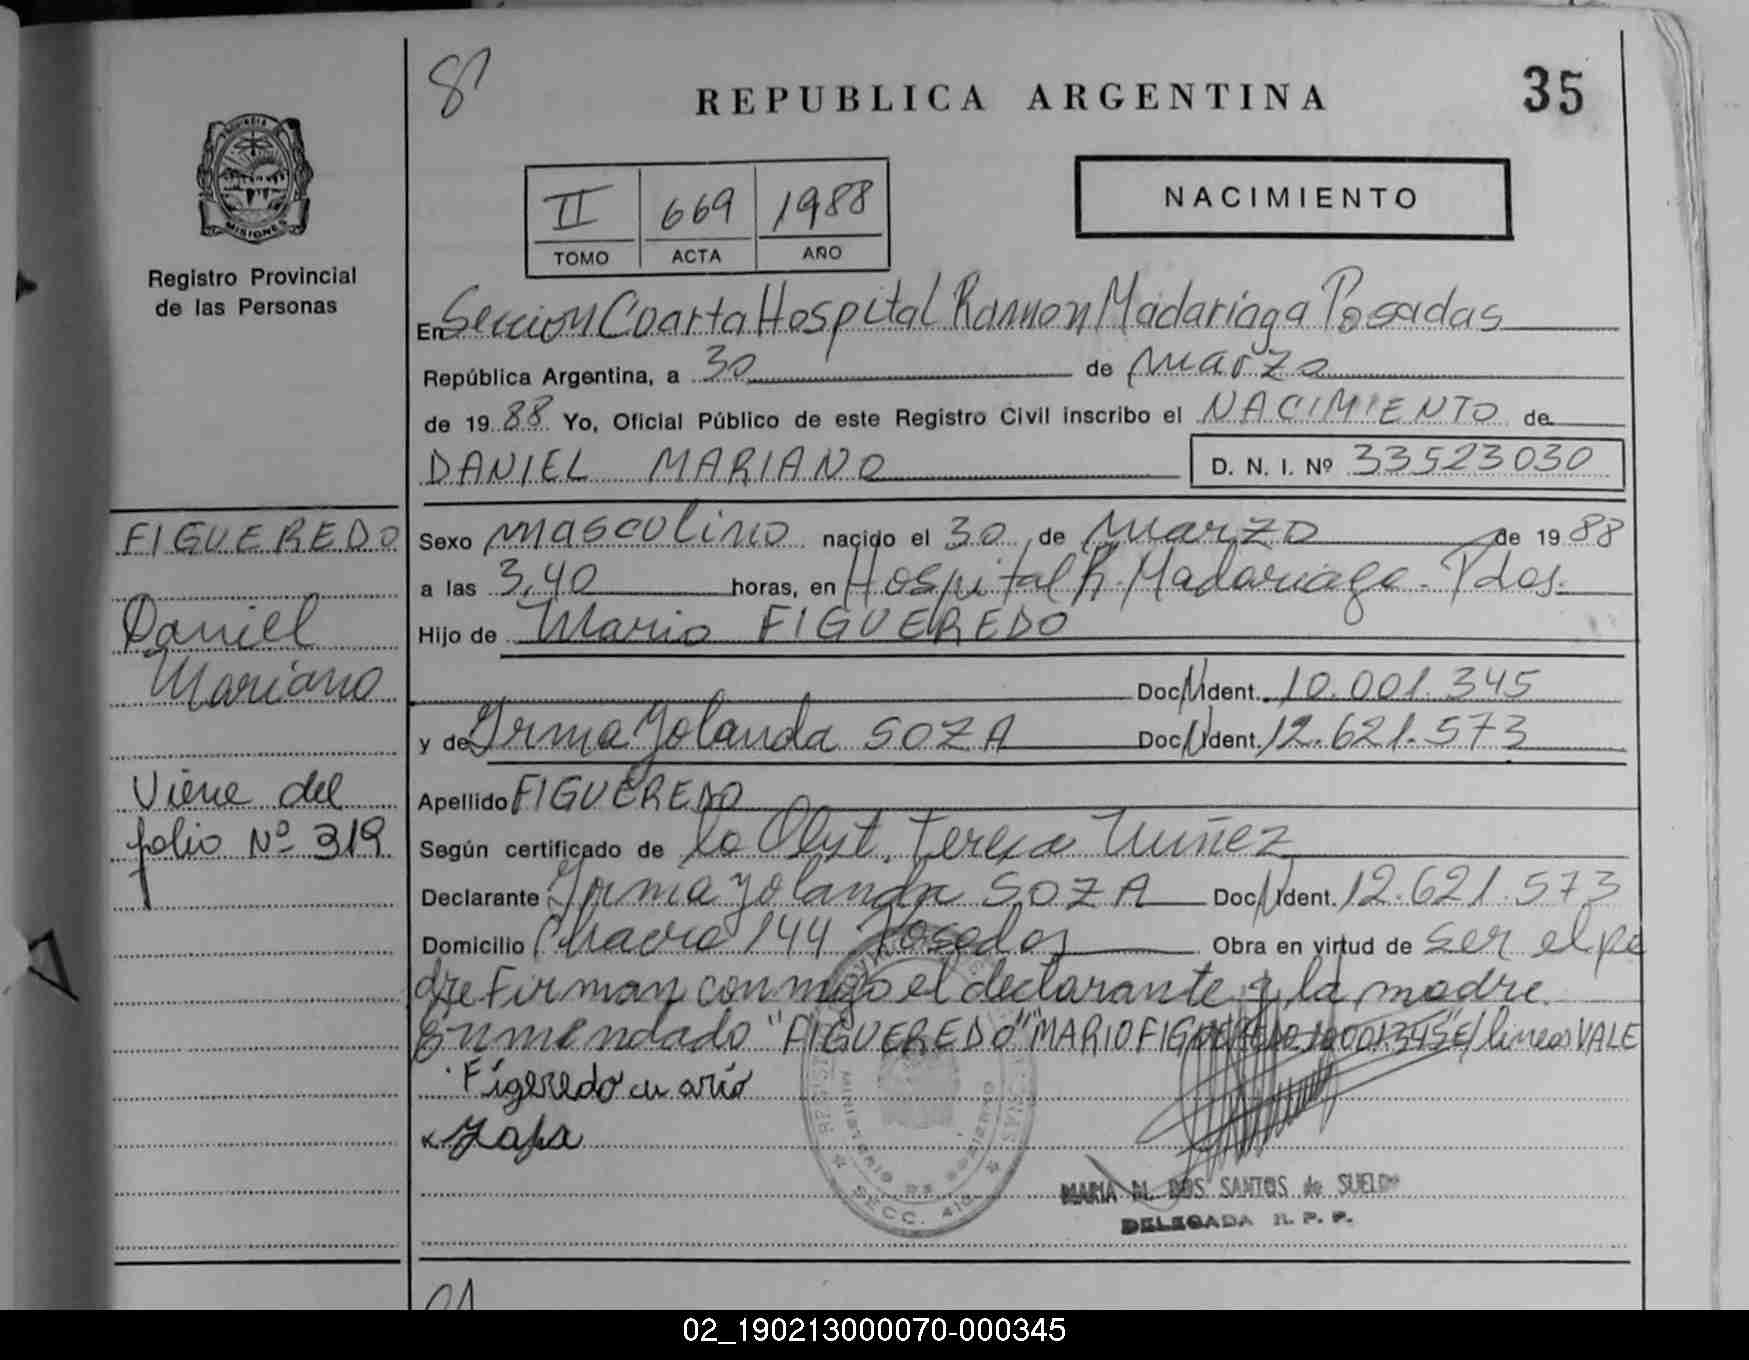 8
REPUBLICA ARGENTINA
35
PROVINCIA
MISIONES
Registro Provincial
de las Personas
II 669 1988
TOMO ACTA AÑO
NACIMIENTO
En Seccion Cuarta Hospital Ramon Madariaga Posadas
República Argentina, a 30 de marzo
de 1988 Yo, Oficial Público de este Registro Civil inscribo el NACIMIENTO de
DANIEL MARIANO D. N. I. Nº 33523030
FIGUEREDO
Daniel
Mariano
Viene del
folio Nº 319
Sexo masculino nacido el 30 de marzo de 1988
a las 3,40 horas, en Hospital R. Madariaga - Pdas.
Hijo de Mario FIGUEREDO
Doc. Ident. 10.001.345
y de Irma Yolanda SOZA Doc. Ident. 12.621.573
Apellido FIGUEREDO
Según certificado de la Obst. Teresa Nuñez
Declarante Irma Yolanda SOZA Doc. Ident. 12.621.573
Domicilio Chacra 144 Posadas Obra en virtud de ser el pa
dre Firman conmigo el declarante y la madre
Enmendado "FIGUEREDO" "MARIO FIGUEREDO 10001345" E/lineas VALE
Figeredo
x Zapa
MINISTERIO DE GOBIERNO
SECC. 4ta
MARIA M. DOS SANTOS de SUELDO
DELEGADA R. P. P.
02_190213000070-000345